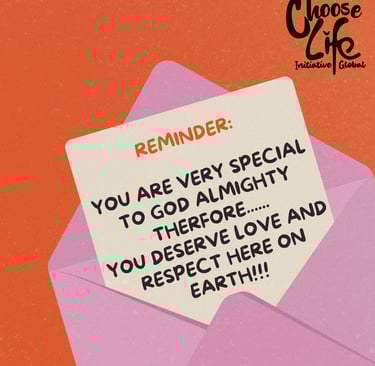 Choose
Life
Initiative Global
REMINDER:
YOU ARE VERY SPECIAL
TO GOD ALMIGHTY
THERFORE......
YOU DESERVE LOVE AND
RESPECT HERE ON
EARTH!!!